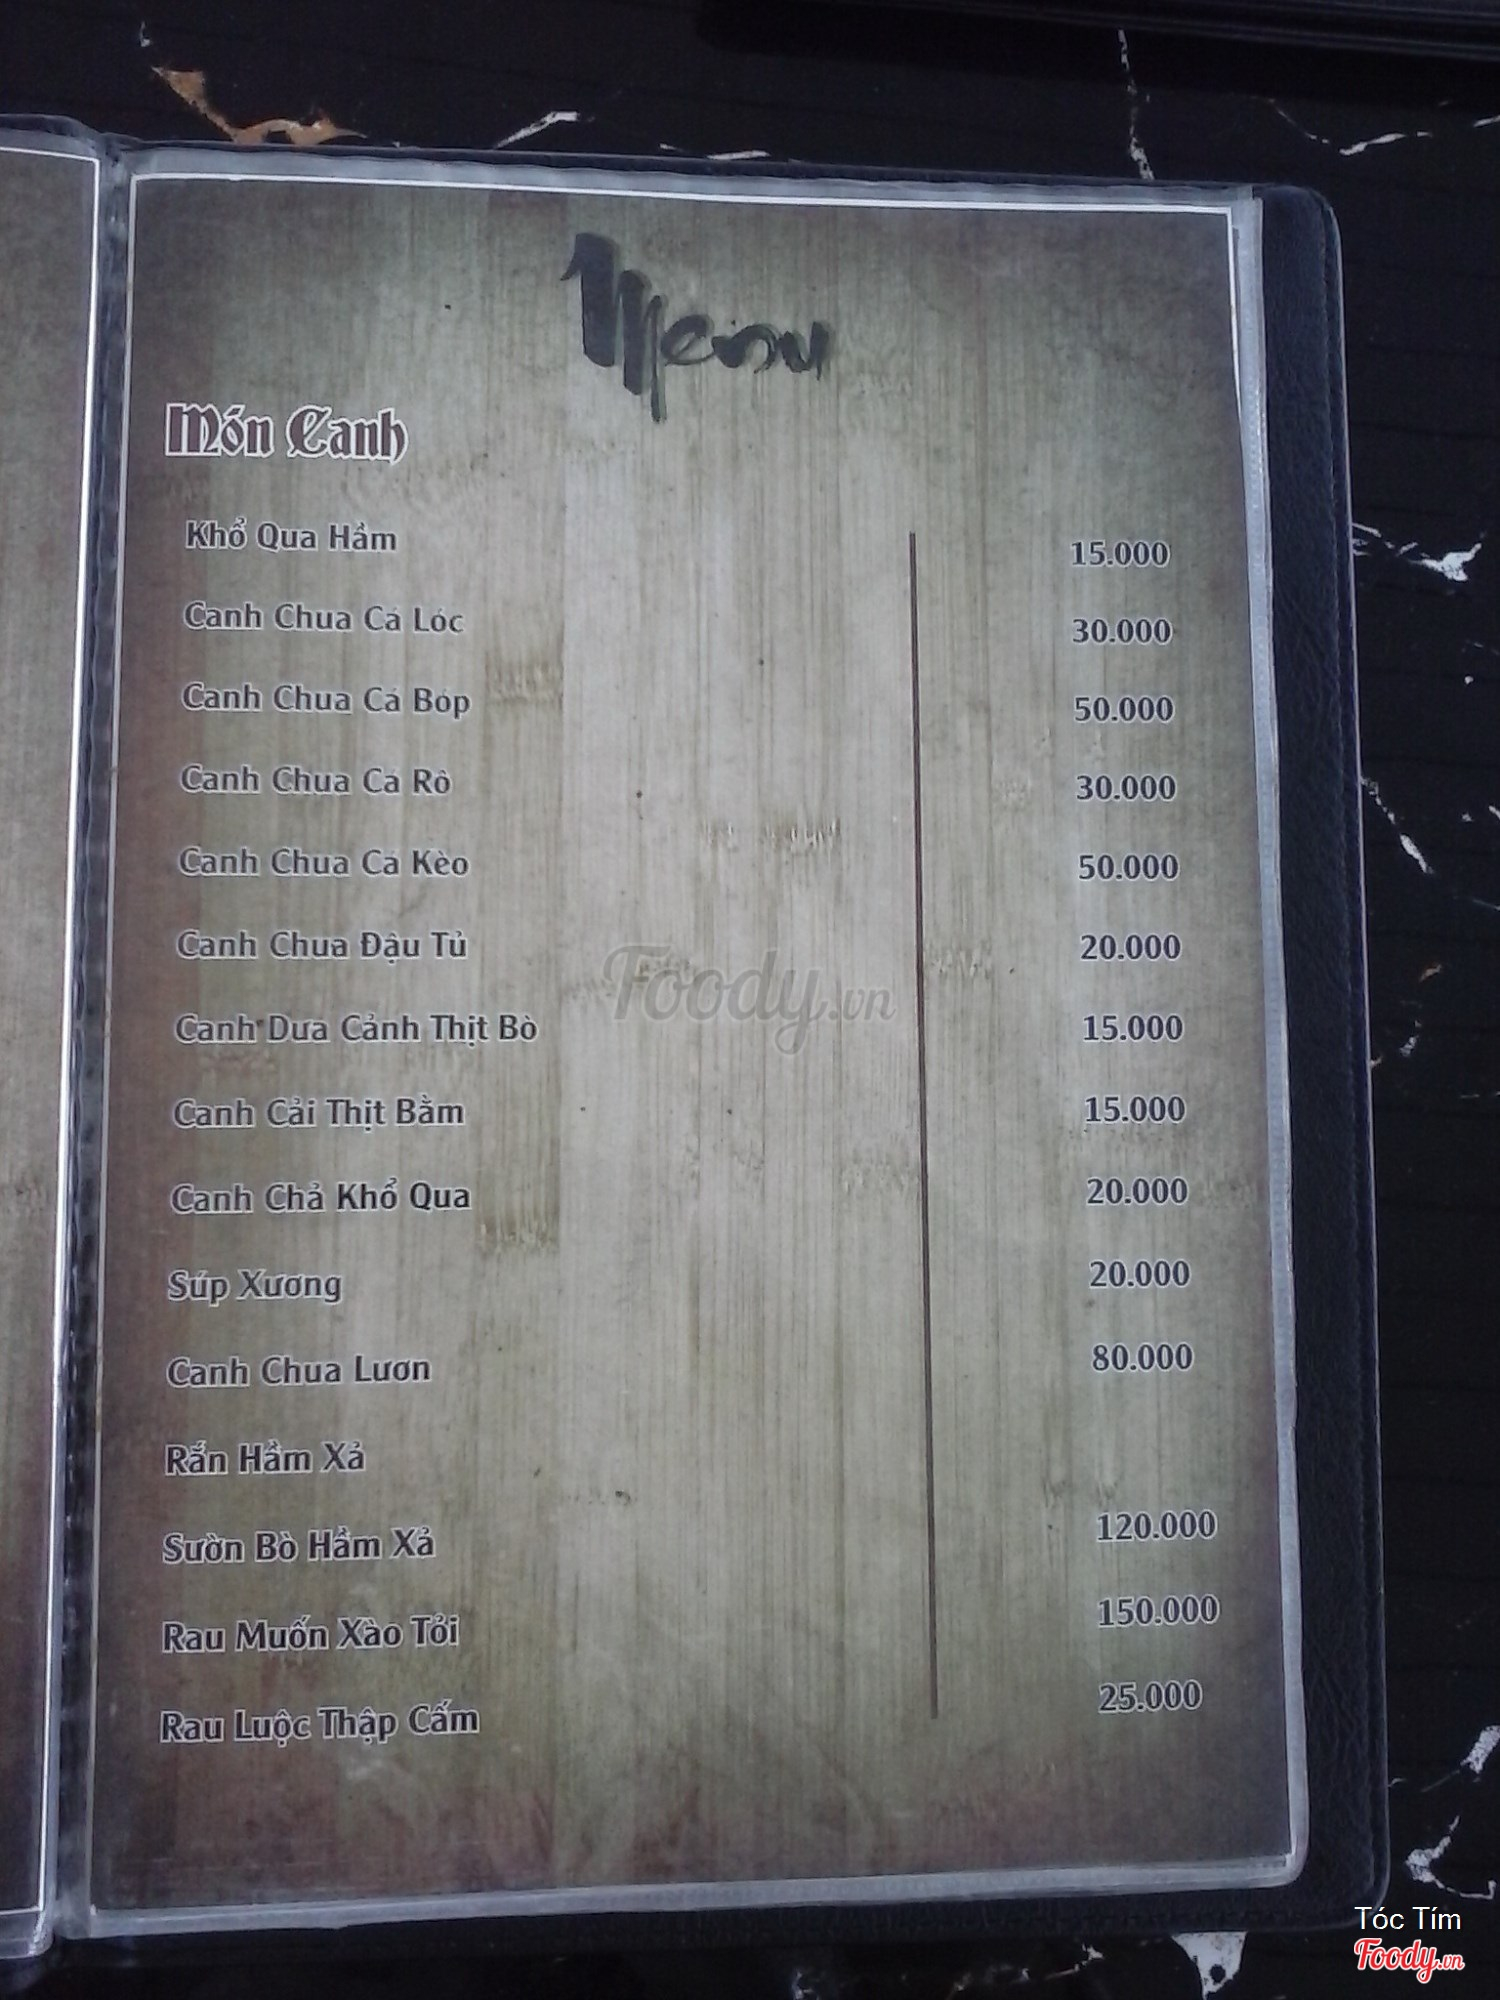 Menu
Món Canh
Khổ Qua Hầm 15.000
Canh Chua Cá Lóc 30.000
Canh Chua Cá Bóp 50.000
Canh Chua Cá Rô 30.000
Canh Chua Cá Kèo 50.000
Canh Chua Đậu Tủ 20.000
Canh Dưa Cảnh Thịt Bò 15.000
Canh Cải Thịt Bằm 15.000
Canh Chả Khổ Qua 20.000
Súp Xương 20.000
Canh Chua Lươn 80.000
Rắn Hầm Xả
Sườn Bò Hầm Xả 120.000
Rau Muốn Xào Tỏi 150.000
Rau Luộc Thập Cấm 25.000
Foody.vn
Tóc Tím
Foody.vn